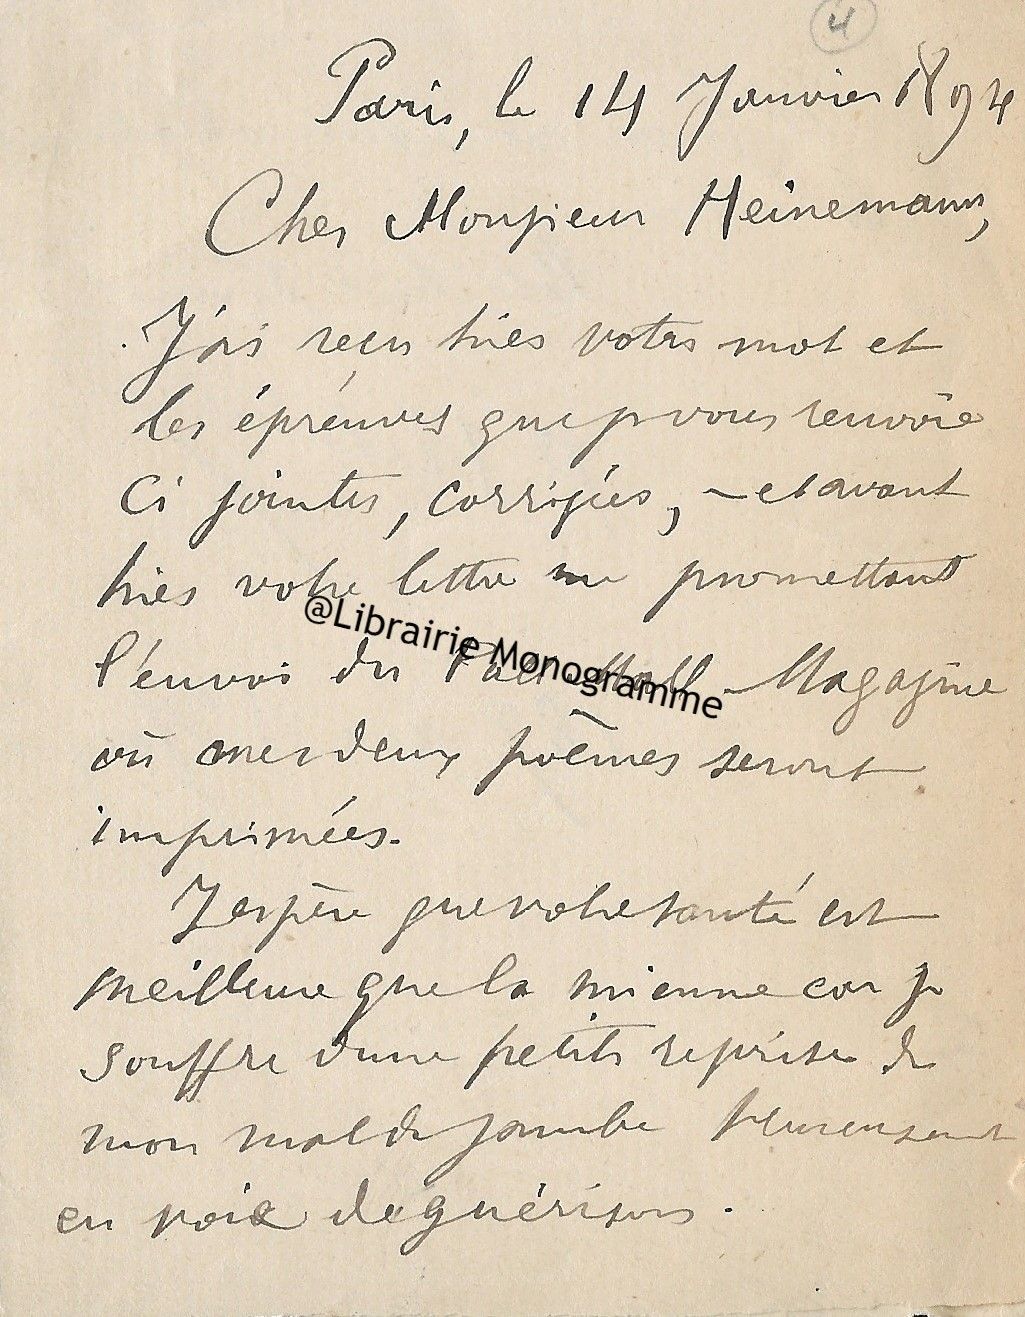 4
Paris, le 14 Janvier 1894
Cher Monsieur Heinemann,
J'ai reçu hier votre mot et
les épreuves que je vous renvoie
ci jointes, corrigées, – et avant
hier votre lettre me promettant
l'envoi du Pall Mall Magazine
où mes deux poèmes seront
imprimées.
J'espère que votre santé est
meilleure que la mienne car je
souffre d'une petite reprise de
mon mal de jambe heureusement
en voie de guérison.
@Librairie Monogramme